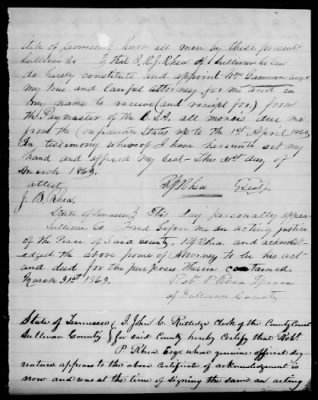 State of Tennessee Know all men by these present
Sullivan Co that I, R. J. Rhea of Sullivan Co
do hereby constitute and appoint Wm Gammon
my true and Lawful Attorney for me and in
my name to receive (and receipt for) from
the Paymaster of the C.S.A. all monies due
me from the Confederate States up to the 1st April
In testimony whereof I have hereunto set my
hand and affixed my Seal This 31st day of
March 1863
attest
J. B. Rhea R J Rhea Seal
State of Tennessee This day personally appea
Sullivan Co before me an acting Justice
of the Peace of Said county, R J Rhea and acknowl
edged the above power of Attorney to be his act
and deed for the purposes therein contained
March 31st 1863. Robt P Rhea
of Sullivan County
State of Tennessee I, John C. Rutledge Clerk of the County Court
Sullivan County for said County hereby Certify that Robt
P Rhea Esqr whose genuine official sig
nature appears to the above certificate of acknowledgment is
now and was at the time of signing the same an acting